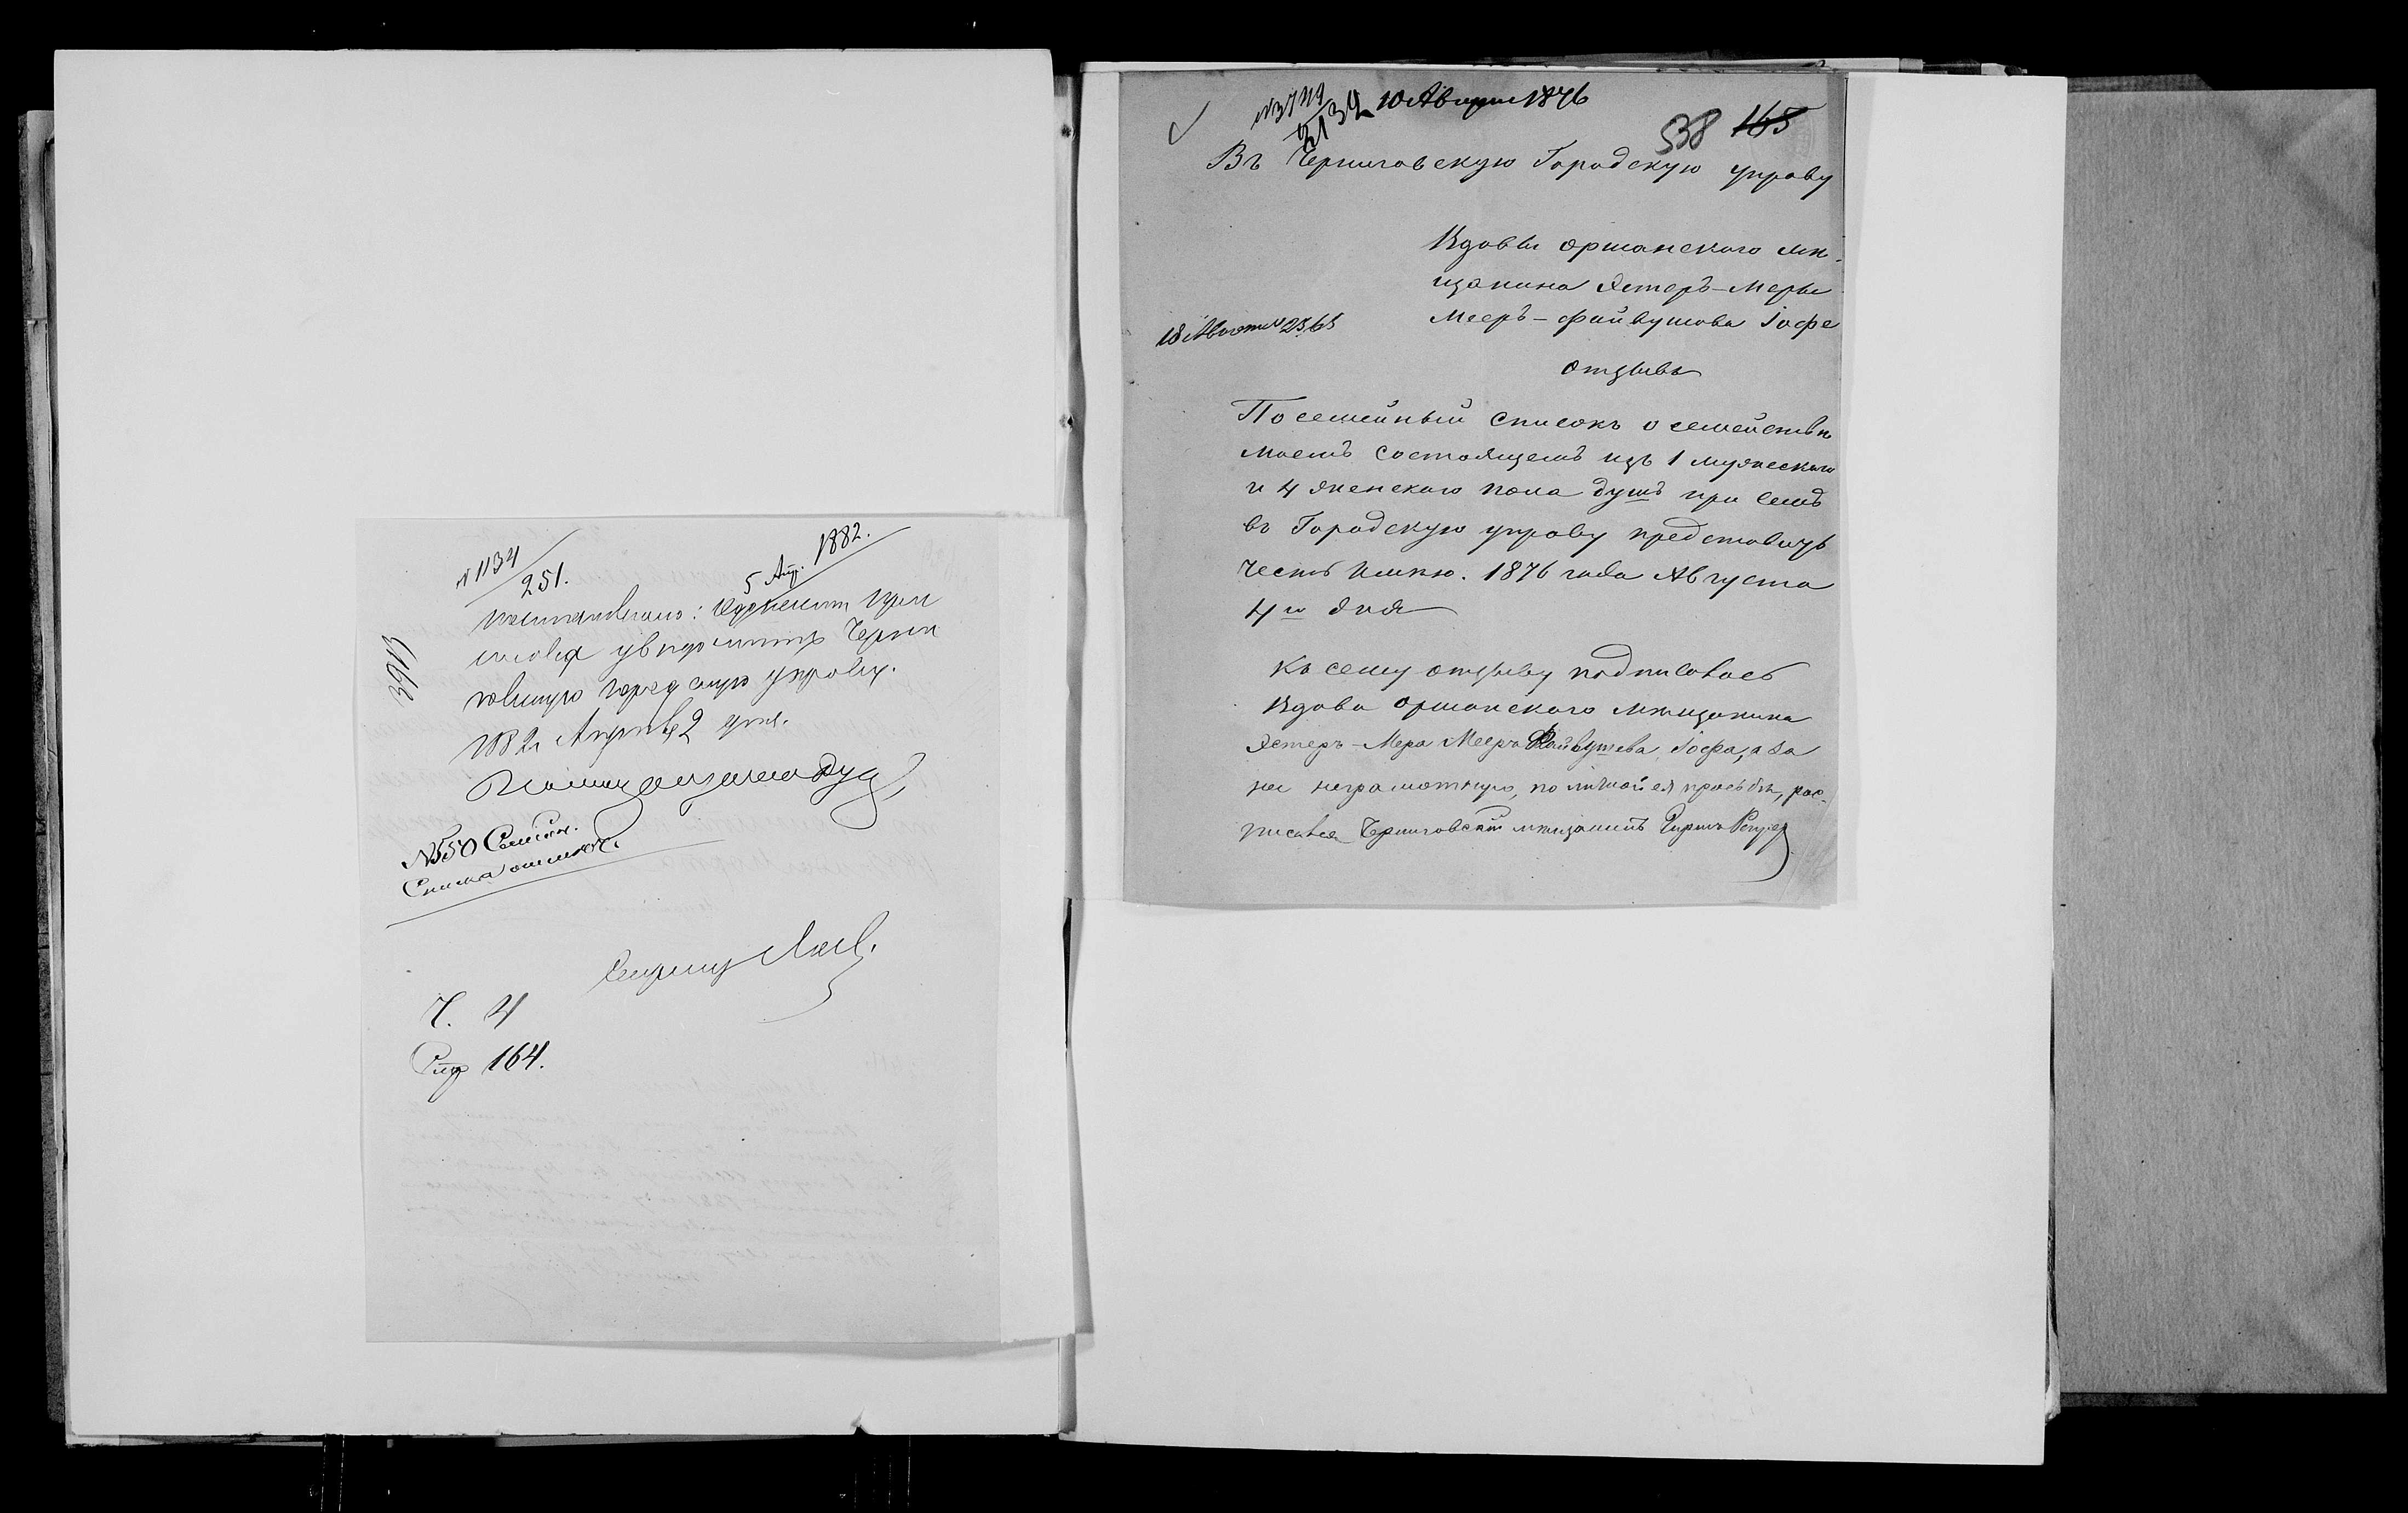 № 1134
251.
5 Апр. 1882.
увѣдомить Черни
говскую городскую управу.
1882 г. Апрѣля 2 дня.
№ 550
Списка
Ч. 4
Стр 164.
3134 10 Августа 1876
538 165
Въ Черниговскую Городскую управу
Вдовы оршанскаго мѣ-
щанина Эстеръ-Меры
Мееръ-Файвушова Іофе
18 Августа 2565
отзывъ
Посемейный списокъ о семействѣ
моемъ состоящемъ изъ 1 мужескаго
и 4 женскаго пола душъ при семъ
въ Городскую управу представить
честь имѣю. 1876 года Августа
4го дня
Къ сему отзыву подписалась
Вдова Оршанскаго мѣщанина
Эстеръ-Мера Мееръ Файвушева Іофа, а за
нее неграмотную, по личной ея просьбѣ, рос-
писался Черниговскій мѣщанинъ Гиршъ